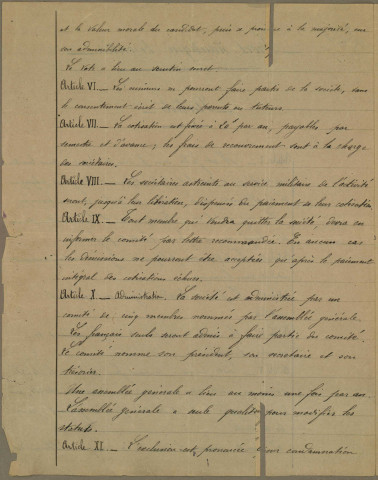 et la valeur morale du candidat, puis à la majorité, sur
son admissibilité.
Le vote a lieu au scrutin secret.
Article VI. — Les mineurs ne pourront faire partie de la société, sans
le consentement écrit de leurs parents ou tuteurs.
Article VII. — La cotisation est fixée à par an, payables par
semestre et d'avance; les frais de recouvrement sont à la charge
des sociétaires.
Article VIII. — Les sociétaires astreints au service militaire de l'activité
seront, jusqu'à leur libération, dispensés du paiement de leur cotisation
Article IX. — Tout membre qui voudra quitter la société, devra en
informer le comité par lettre recommandée. En aucun cas
les démissions ne pourront être acceptées qu'après le paiement
intégral des cotisations échues.
Article X. — Administration. La société est administrée par un
comité de cinq membres nommés par l'assemblée générale.
Les français seuls seront admis à faire partie du comité.
Le comité nomme son président, son secrétaire et son
trésorier.
Une assemblée générale a lieu au moins une fois par an.
L'assemblée générale a seule qualité pour modifier les
statuts.
Article XI. — L'exclusion est prononcée pour condamnation